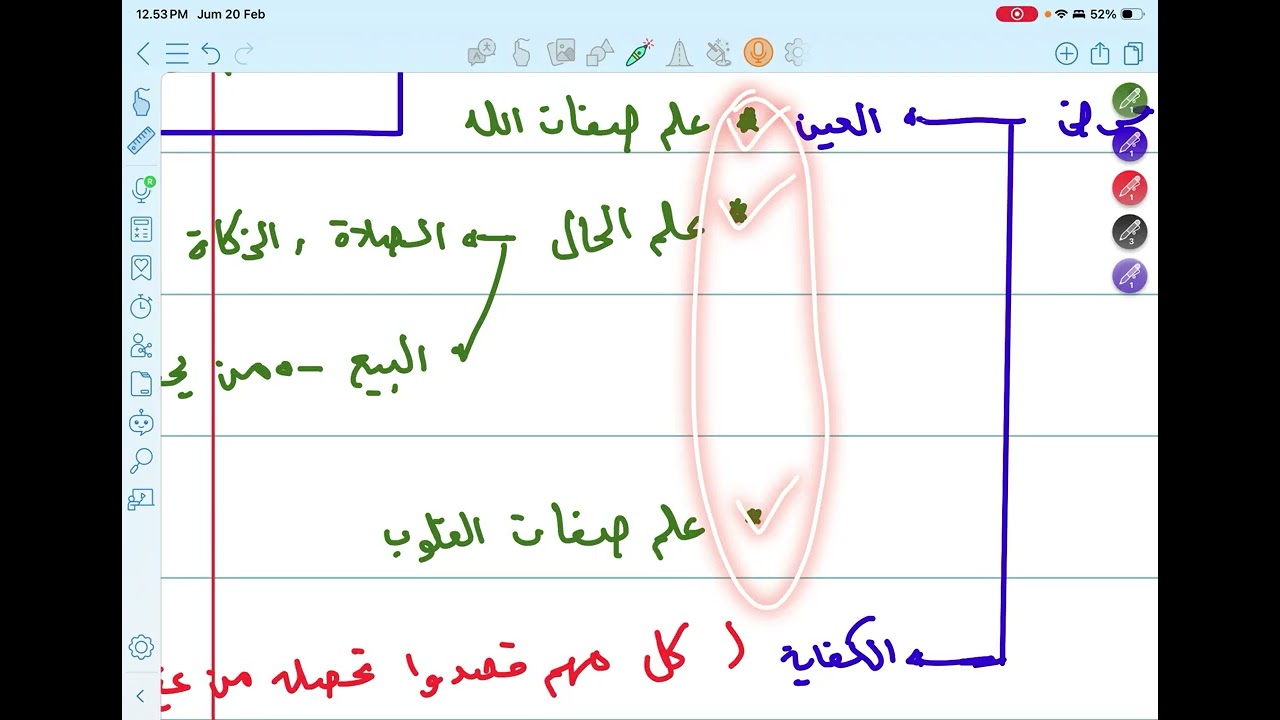 12.53 PM Jum 20 Feb 52%
العين ← علم صفات الله
علم الحال ← الصلاة، الزكاة
البيع ← من
علم صفات القلوب
الكفاية ( كل مهم قصدوا تحصيله من